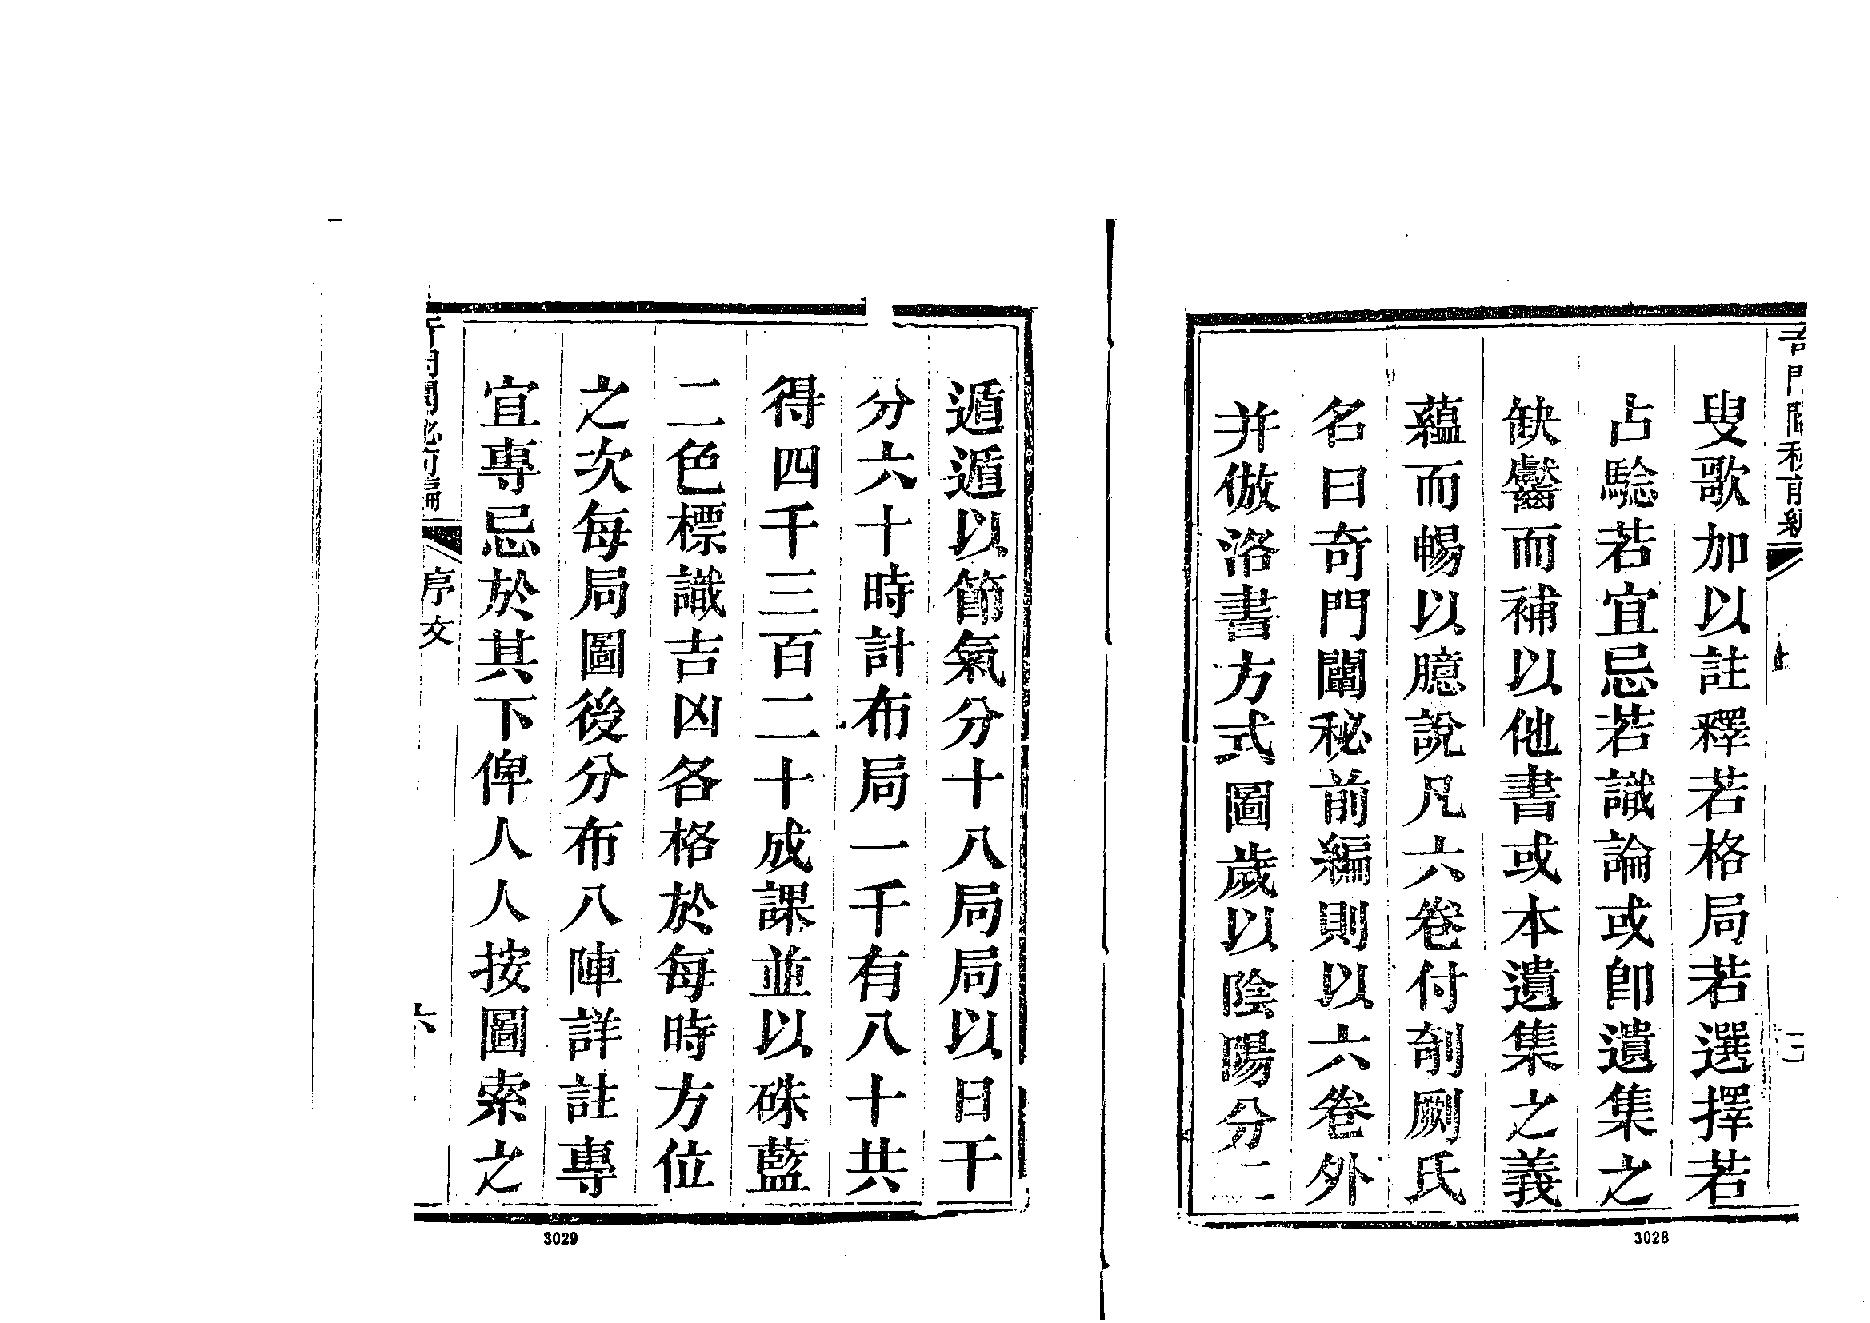 叟歌加以註釋若格局若選擇若
占騐若宜忌若識論或卽遺集之
缺齾而補以他書或本遺集之義
蘊而暢以臆說凡六卷付剞劂氏
名曰奇門闡秘前編則以六卷外
并倣洛書方式圖歲以陰陽分二
3028
遁遁以節氣分十八局局以日干
分六十時計布局一千有八十共
得四千三百二十成課並以硃藍
二色標識吉凶各格於每時方位
之次每局圖後分布八陣詳註專
宜專忌於其下俾人人按圖索之
序文
六
3029